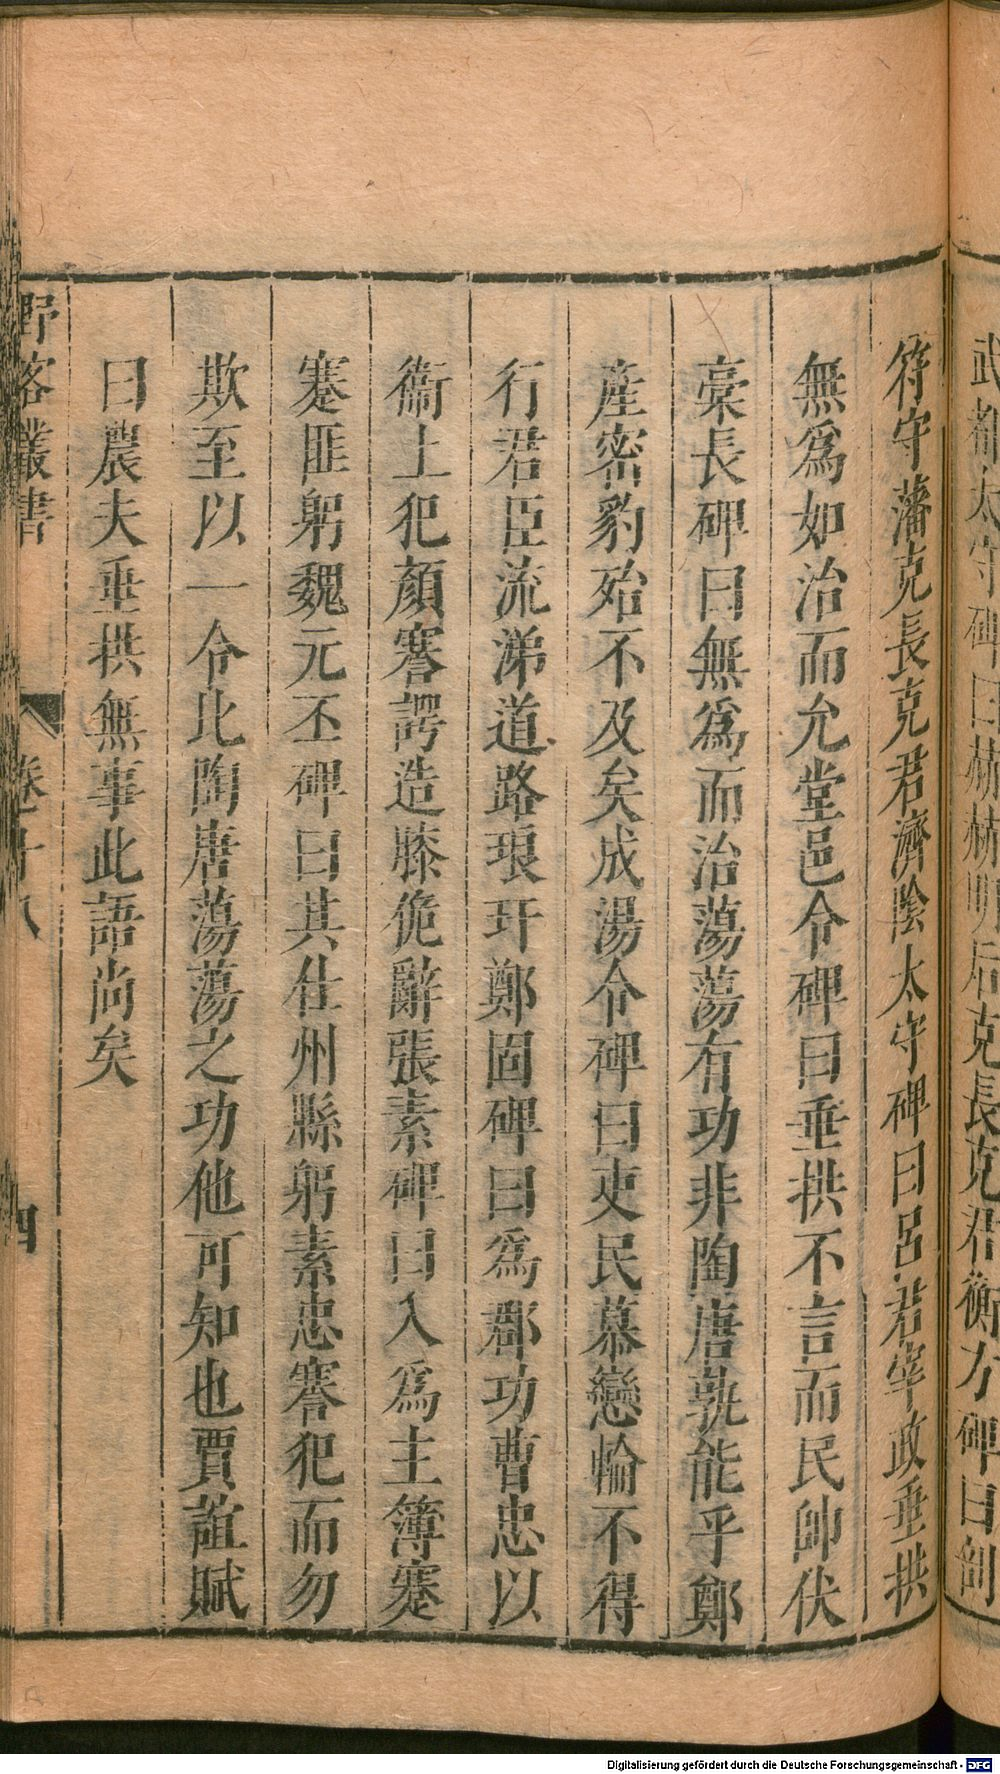 武都太守碑曰赫赫明后克長克君衡方碑曰剖
符守藩克長克君濟陰太守碑曰呂君宰政垂拱
無為如治而允堂邑令碑曰垂拱不言而民帥伏
槀長碑曰無為而治蕩蕩有功非陶唐孰能乎鄭
產密豹殆不及矣成湯令碑曰吏民慕戀輪不得
行君臣流涕道路琅玕鄭固碑曰為郡功曹忠以
衞上犯顏謇諤造膝佹辭張素碑曰入為主簿蹇
蹇匪躬魏元丕碑曰其仕州縣躬素忠謇犯而勿
欺至以一令比陶唐蕩蕩之功他可知也賈誼賦
曰農夫垂拱無事此語尚矣
野客叢書 卷十八 四
Digitalisierung gefördert durch die Deutsche Forschungsgemeinschaft - DFG